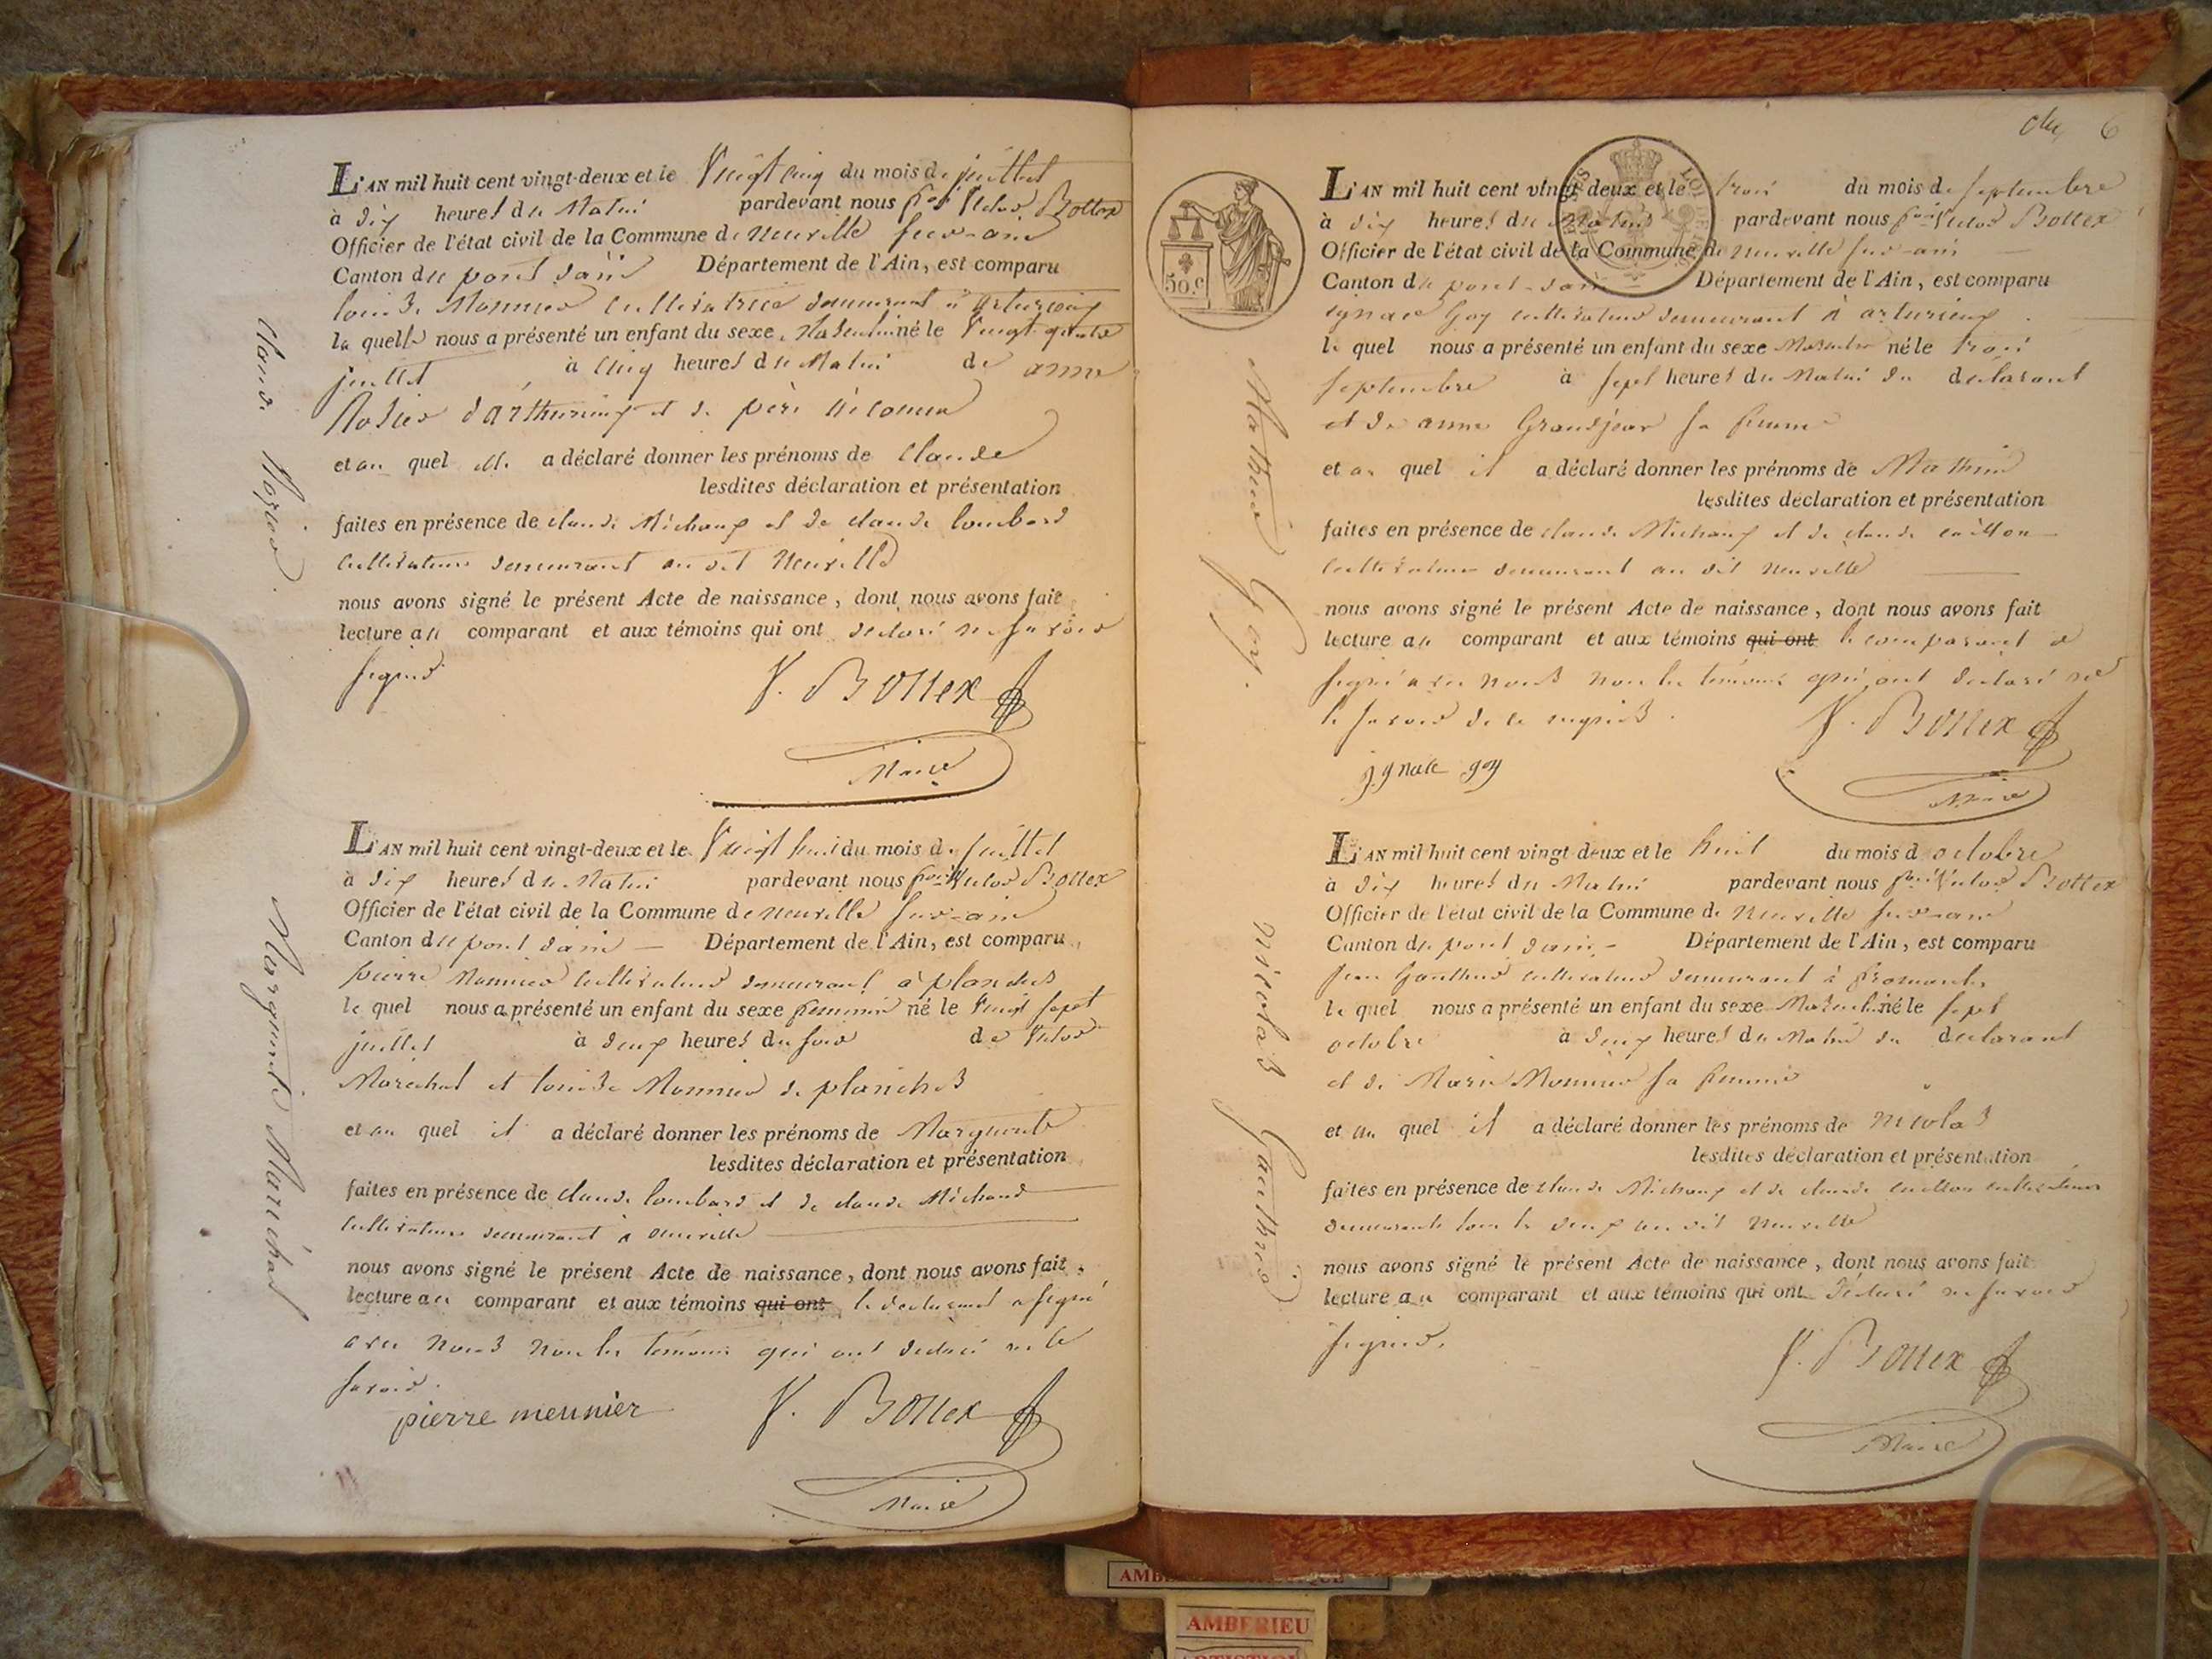 L'AN mil huit cent vingt-deux et le Vingt cinq du mois de juillet
à dix heures du Matin pardevant nous Victor Bottex
Officier de l'état civil de la Commune de Neuville sur-ain
Canton du pont d'ain Département de l'Ain, est comparu
Monnier cultivatrice demeurant à
la quelle nous a présenté un enfant du sexe Masculin né le Vingt quatre
juillet à cinq heures du Matin de anne
et de père inconnu
et au quel elle a déclaré donner les prénoms de Claude
lesdites déclaration et présentation
faites en présence de claude Michaux et de claude lombard
cultivateurs demeurant au dit Neuville
nous avons signé le présent Acte de naissance, dont nous avons fait
lecture au comparant et aux témoins qui ont déclaré ne savoir
signer
V. Bottex
Maire
Claude
L'AN mil huit cent vingt-deux et le Vingt huit du mois de juillet
à dix heures du Matin pardevant nous Victor Bottex
Officier de l'état civil de la Commune de Neuville sur-ain
Canton du pont d'ain Département de l'Ain, est comparu
pierre Monnier cultivateur demeurant à planches
le quel nous a présenté un enfant du sexe feminin né le Vingt sept
juillet à deux heures du soir de Victor
Marechal et louise Monnier de planches
et au quel il a déclaré donner les prénoms de Marguerite
lesdites déclaration et présentation
faites en présence de claude lombard et de claude Michaud
cultivateurs demeurant à neuville
nous avons signé le présent Acte de naissance, dont nous avons fait
lecture au comparant et aux témoins qui ont le declarant a signé
avec nous non les temoins qui ont declaré ne le
savoir.
pierre meunier V. Bottex
Maire
Marguerite Maréchal
6
50.c
L'AN mil huit cent vingt deux et le trois du mois de septembre
à dix heures du Matin pardevant nous Victor Bottex
Officier de l'état civil de la Commune de Neuville sur-ain
Canton du pont-d'ain Département de l'Ain, est comparu
ignace Goy cultivateur demeurant à
le quel nous a présenté un enfant du sexe Masculin né le trois
septembre à sept heures du Matin du declarant
et de anne Grandjean sa femme
et au quel il a déclaré donner les prénoms de Mathieu
lesdites déclaration et présentation
faites en présence de claude Michaux et de claude
cultivateurs demeurant au dit neuville
nous avons signé le présent Acte de naissance, dont nous avons fait
lecture au comparant et aux témoins qui ont le comparant a
signé avec nous non les témoins qui ont declaré ne
le savoir de ce requis
V. Bottex
jgnace goy
Maire
Mathieu Goy.
L'AN mil huit cent vingt deux et le huit du mois d octobre
à dix heures du Matin pardevant nous Victor Bottex
Officier de l'état civil de la Commune de Neuville sur-ain
Canton du pont d'ain Département de l'Ain, est comparu
jean Gauthier cultivateur demeurant à
le quel nous a présenté un enfant du sexe Masculin né le sept
octobre à deux heures du Matin du declarant
et de Marie Monnier sa femme
et au quel il a déclaré donner les prénoms de nicolas
lesdites déclaration et présentation
faites en présence de claude Michaux et de claude cultivateurs
demeurants tous les deux au dit neuville
nous avons signé le présent Acte de naissance, dont nous avons fait
lecture au comparant et aux témoins qui ont déclaré ne savoir
signer.
V. Bottex
Maire
nicolas Gauthier
AMBERIEU